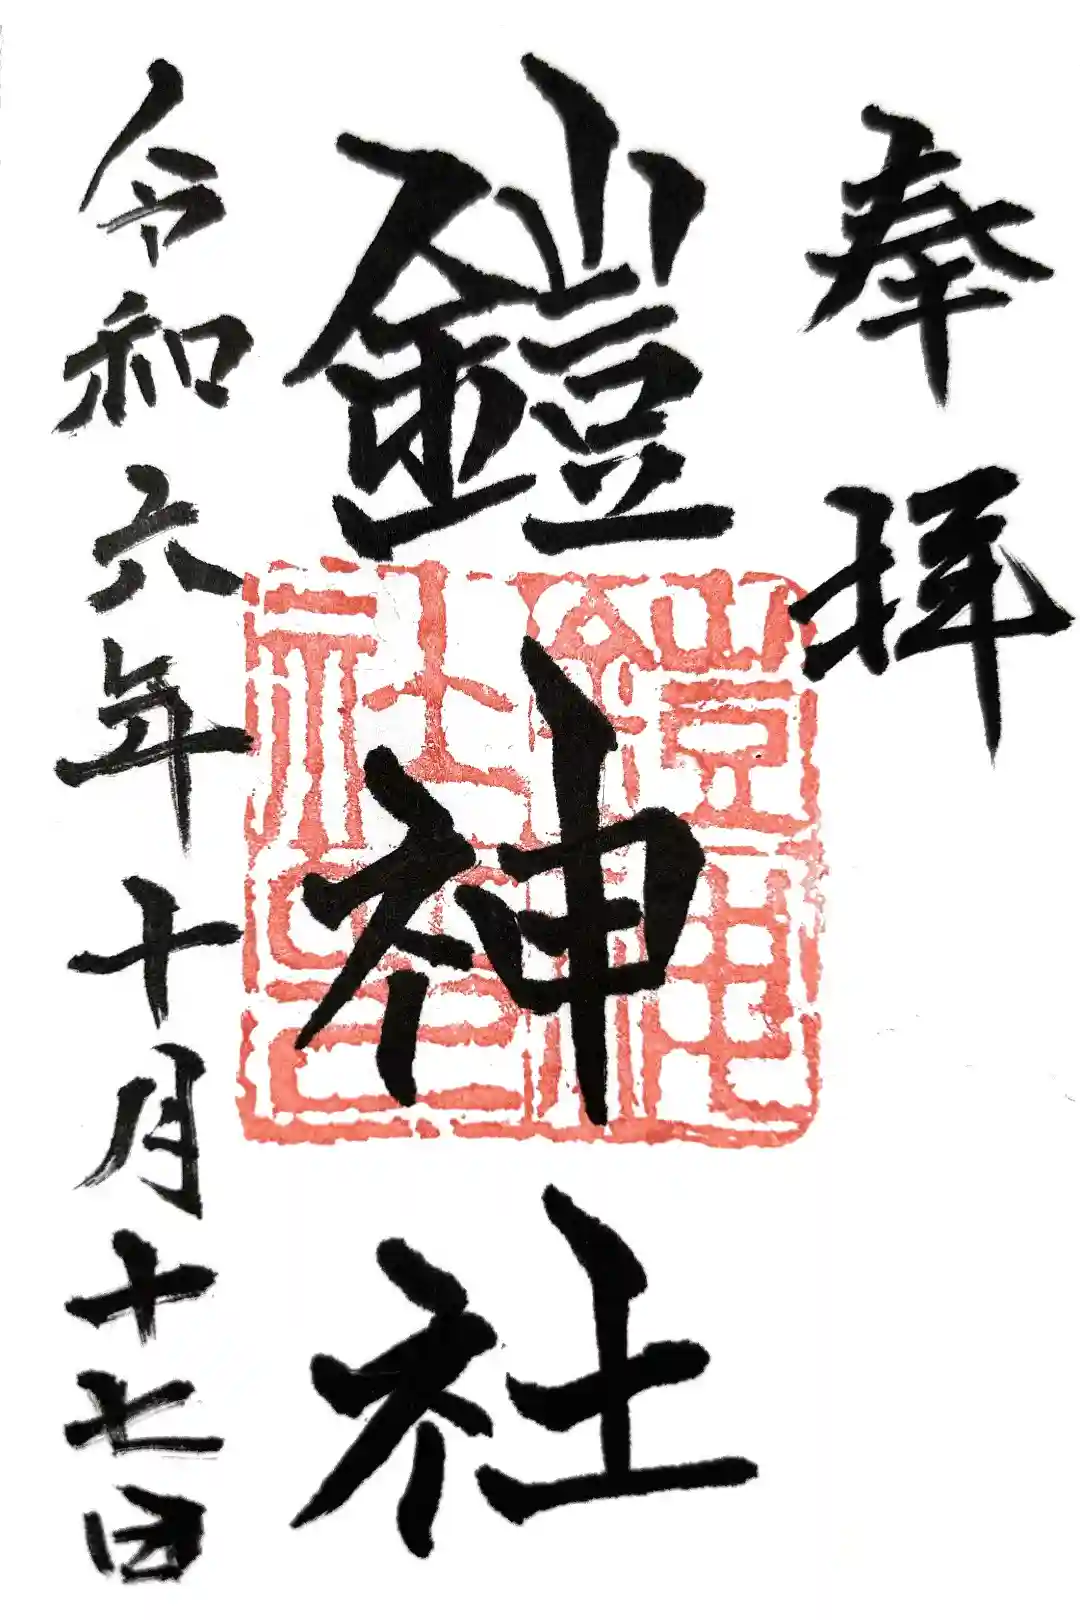 奉拝
鎧神社
鎧神社之印
令和六年十月十七日